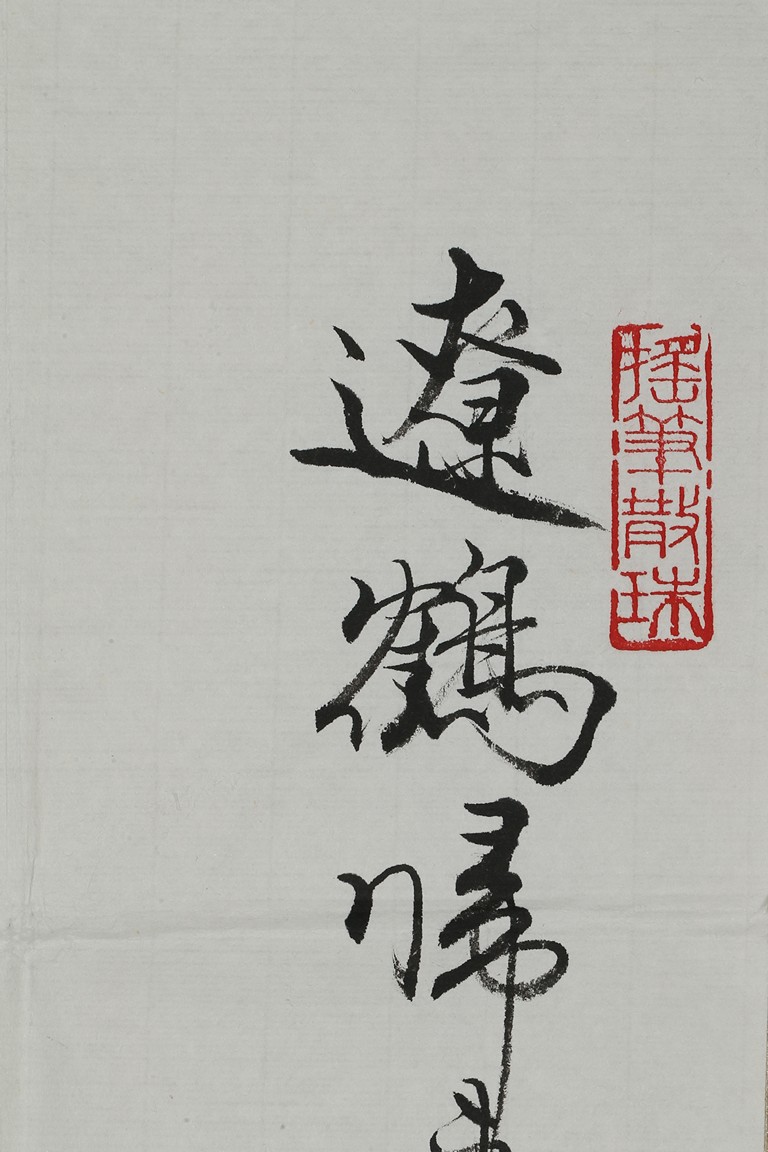 搖筆散珠
遼鶴歸